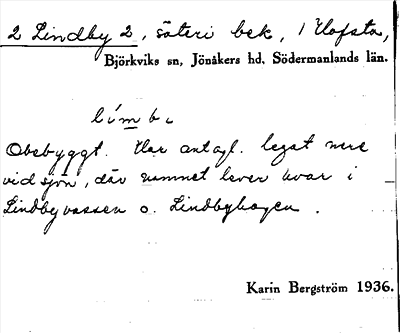 2 Lindby 2, säteri bek, / Hofsta,
Björkviks sn, Jönåkers hd, Södermanlands län.
límbι
Obebyggt. Har antagl. legat nere
vid sjön, där namnet lever kvar i
Lindbyvassen o. Lindbyhagen.
Karin Bergström 1936.